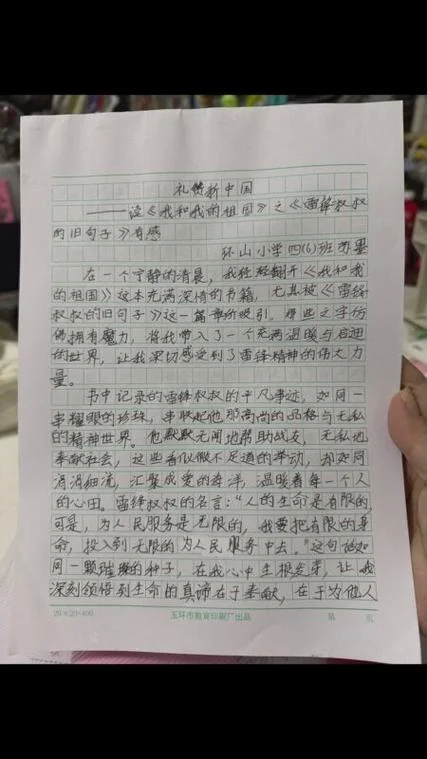 礼赞新中国
——读《我和我的祖国》之《雷锋叔叔
的旧句子》有感
环山小学四(6)班 苏墨
在一个宁静的清晨,我轻轻翻开《我和我
的祖国》这本充满深情的书籍,尤其被《雷锋
叔叔的旧句子》这一篇章所吸引。那些文字仿
佛拥有魔力,将我带入了一个充满温暖与启迪
的世界,让我深切感受到了雷锋精神的伟大力
量。
书中记录的雷锋叔叔的平凡事迹,如同一
串耀眼的珍珠,串联起他那高尚的品格与无私
的精神世界。他默默无闻地帮助战友,无私地
奉献社会,这些看似微不足道的举动,却如同
涓涓细流,汇聚成爱的海洋,温暖着每一个人
的心田。雷锋叔叔的名言:“人的生命是有限的,
可是,为人民服务是无限的,我要把有限的生
命,投入到无限的为人民服务中去。”这句话如
同一颗璀璨的种子,在我心中生根发芽,让我
深刻领悟到生命的真谛在于奉献,在于为他人
20×20=400 玉环市教育印刷厂出品 第 页